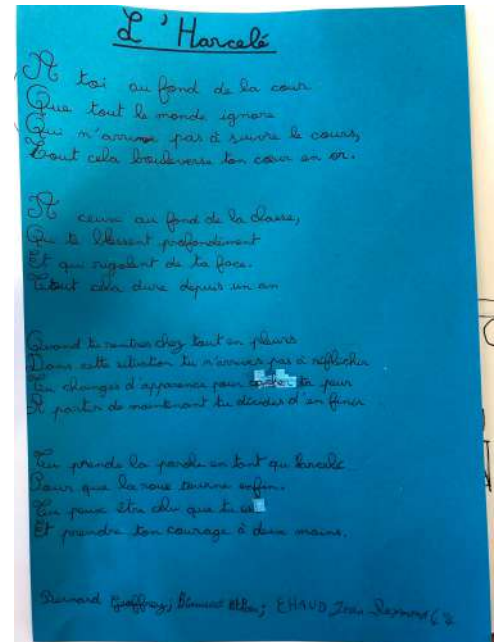 L'Harcelé
A toi au fond de la cour
Que tout le monde ignore
Qui n'arrive pas à suivre le cours,
Tout cela bouleverse ton cœur en or.
A ceux au fond de la classe,
Qui te blessent profondément
Et qui rigolent de ta face.
Tout cela dure depuis un an
Quand tu rentres chez tout en pleurs
Dans cette situation tu n'arrives pas à réfléchir
Tu changes d'apparence pour cacher ta peur
A partir de maintenant tu décides d'en finir
Tu prends la parole en tant qu'harcelé
Pour que la roue tourne enfin.
Tu peux être celui que tu es
Et prendre ton courage à deux mains.
Bernard Geoffrey; EHAUD